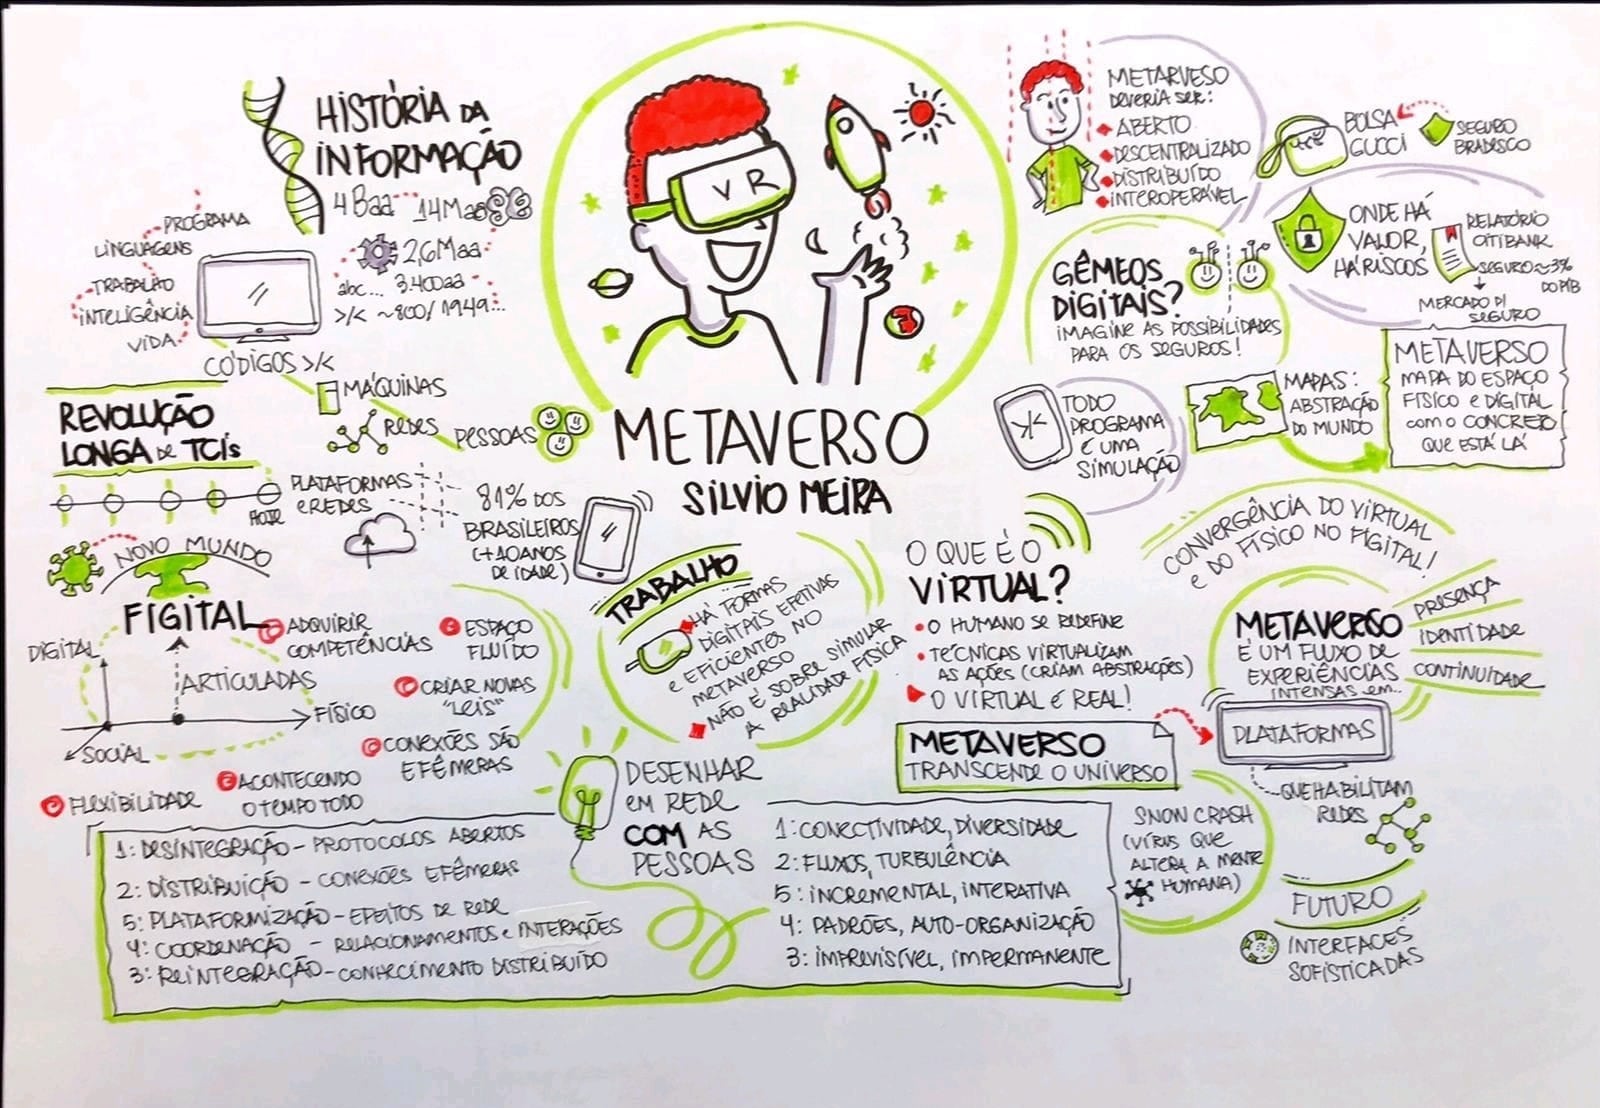 HISTÓRIA DA
INFORMAÇÃO
4Baa 14Maa
2,6Maa
abc... 3.400aa
>/< ~800/1949...
PROGRAMA
LINGUAGENS
TRABALHO
INTELIGÊNCIA
VIDA
CÓDIGOS >/<
MÁQUINAS
REDES
PESSOAS
REVOLUÇÃO
LONGA DE TCIs
HOJE
PLATAFORMAS
E REDES
81% DOS
BRASILEIROS
(+10 ANOS
DE IDADE)
NOVO MUNDO
FIGITAL
DIGITAL
ARTICULADAS
FÍSICO
SOCIAL
ADQUIRIR
COMPETÊNCIAS
ESPAÇO
FLUÍDO
CRIAR NOVAS
"LEIS"
CONEXÕES SÃO
EFÊMERAS
ACONTECENDO
O TEMPO TODO
FLEXIBILIDADE
VR
METAVERSO
SILVIO MEIRA
TRABALHO
HÁ FORMAS
DIGITAIS EFETIVAS
E EFICIENTES NO
METAVERSO
NÃO É SOBRE SIMULAR
A REALIDADE FÍSICA
DESENHAR
EM REDE
COM AS
PESSOAS
1: DESINTEGRAÇÃO - PROTOCOLOS ABERTOS
2: DISTRIBUIÇÃO - CONEXÕES EFÊMERAS
5: PLATAFORMIZAÇÃO - EFEITOS DE REDE
4: COORDENAÇÃO - RELACIONAMENTOS E INTERAÇÕES
3: REINTEGRAÇÃO - CONHECIMENTO DISTRIBUÍDO
1: CONECTIVIDADE, DIVERSIDADE
2: FLUXOS, TURBULÊNCIA
5: INCREMENTAL, INTERATIVA
4: PADRÕES, AUTO-ORGANIZAÇÃO
3: IMPREVISÍVEL, IMPERMANENTE
METARVESO
DEVERIA SER:
ABERTO
DESCENTRALIZADO
DISTRIBUÍDO
INTEROPERÁVEL
BOLSA
GUCCI
SEGURO
BRADESCO
ONDE HÁ
VALOR,
HÁ RISCOS
RELATÓRIO
CITIBANK
SEGURO ≈ 3%
DO PIB
MERCADO P/
SEGURO
GÊMEOS
DIGITAIS?
IMAGINE AS POSSIBILIDADES
PARA OS SEGUROS!
>/<
TODO
PROGRAMA
É UMA
SIMULAÇÃO
MAPAS:
ABSTRAÇÃO
DO MUNDO
METAVERSO
MAPA DO ESPAÇO
FÍSICO E DIGITAL
COM O CONCRETO
QUE ESTÁ LÁ
O QUE É O
VIRTUAL?
O HUMANO SE REDEFINE
TÉCNICAS VIRTUALIZAM
AS AÇÕES (CRIAM ABSTRAÇÕES)
O VIRTUAL É REAL!
METAVERSO
TRANSCENDE O UNIVERSO
CONVERGÊNCIA DO VIRTUAL
E DO FÍSICO NO FIGITAL!
METAVERSO
É UM FLUXO DE
EXPERIÊNCIAS
INTENSAS EM...
PRESENÇA
IDENTIDADE
CONTINUIDADE
PLATAFORMAS
QUE HABILITAM
REDES
SNOW CRASH
(VÍRUS QUE
ALTERA A MENTE
HUMANA)
FUTURO
INTERFACES
SOFISTICADAS